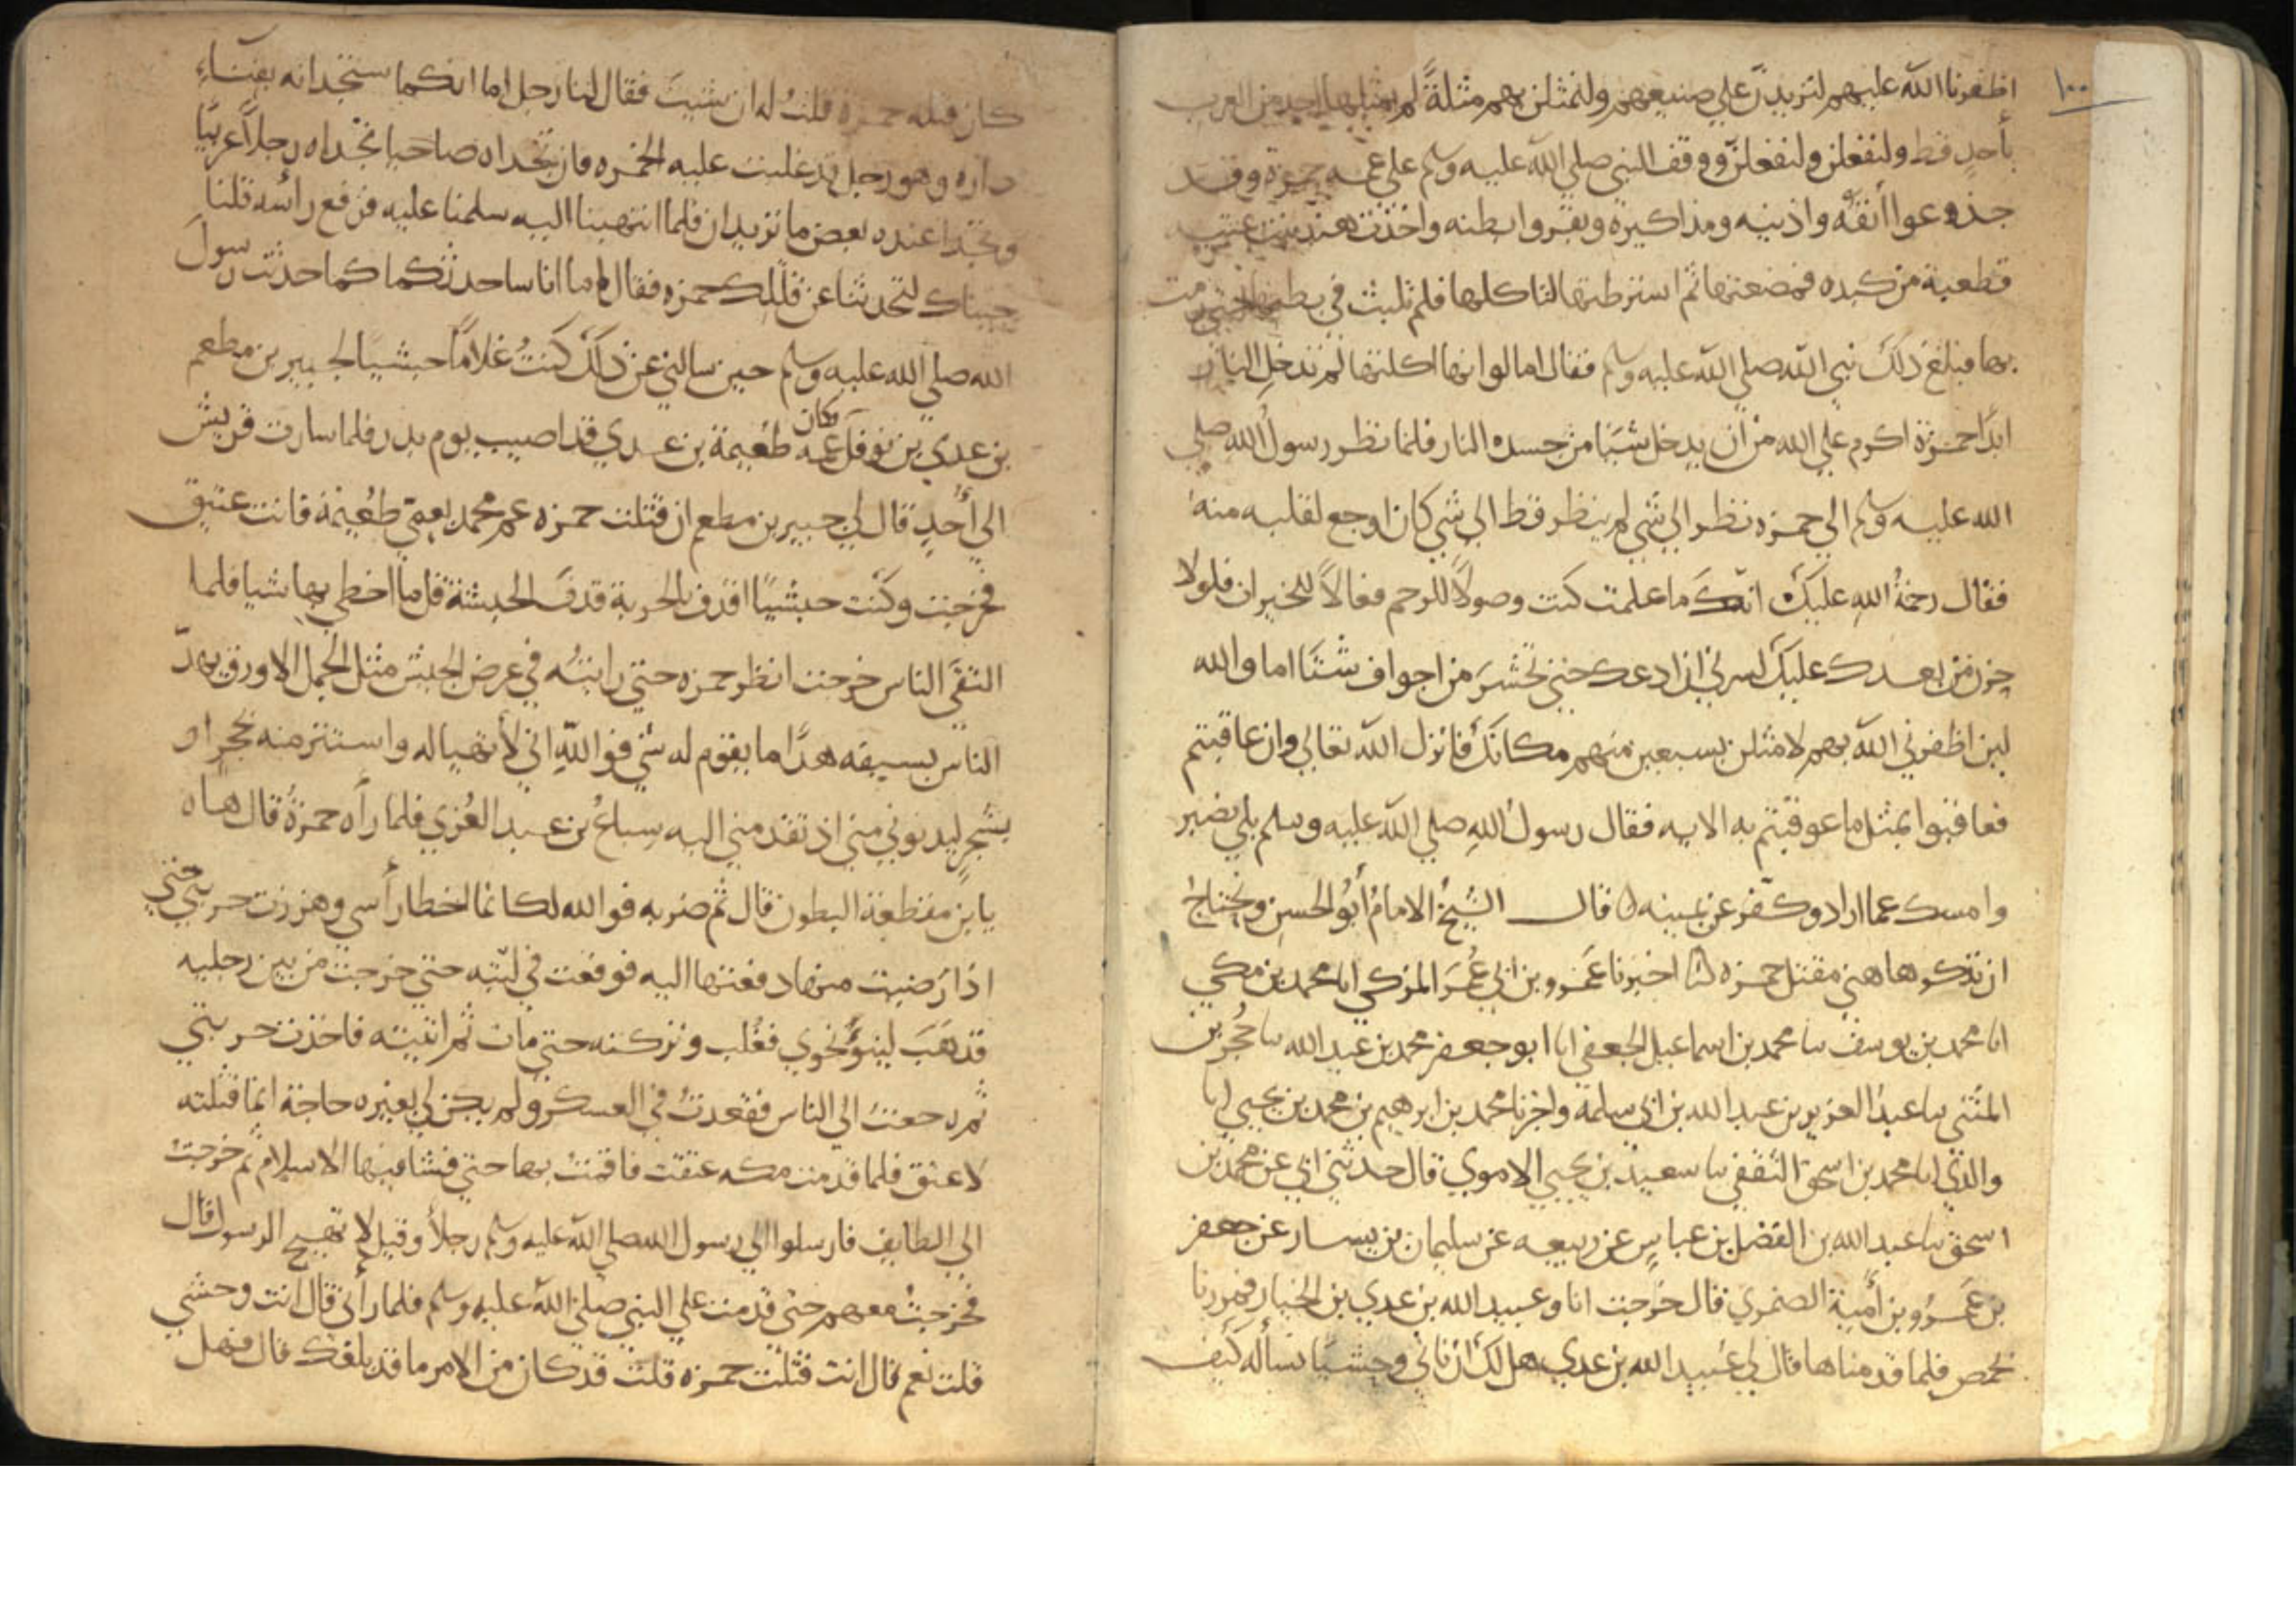 ١٠٠
اظفرنا الله عليهم لنزيدنّ علي صنيعهم ولنمثلن بهم مثلةً لم يمثلها احد من العرب
بأحدٍ قط ولنفعلن ولنفعلنّ ووقف النبي صلي الله عليه وسلم علي عمه حمزة وقد
جذعوا أنفَهُ واذنيه ومذاكيره وبقروا بطنه واخذت هند بنت عتبه
قطعة من كبده فمضغتها ثم استرطتها لتاكلها فلم تلبث في بطنها حتي رمت
بها فبلغ ذلك نبي الله صلي الله عليه وسلم فقال اما لو انها اكلتها لم تدخل النار
ابدًا حمزة اكرم علي الله من ان يدخل شيًا من جسده النار فلما نظر رسول الله صلي
الله عليه وسلم الي حمزه نظر الي شي لم ينظر قط الي شي كان اوجع لقلبه منه
فقال رحمةُ اللهِ عليك انك ما علمت كنت وصولاً للرحم فعالاً للخيرات فلولا
حزن من بعدك عليك لسرني ان ادعك حتي تحشر من اجواف شتّا اما والله
لين اظفرني الله بهم لامثلن بسبعين منهم مكانك فانزل الله تعالي وان عاقبتم
فعاقبوا بمثل ما عوقبتم به الايه فقال رسول اللهِ صلي الله عليه وسلم بلي نصبر
وامسك عما اراد وكفر عن يمينه ٥ قال الشيخُ الامامُ أبوُ الحسن ونحتاجُ
ان نذكر هاهني مقتل حمزه انا اخبرنا عَمرو بن ابي عُمَرَ المزكي انا محمد بن مكي
انا محمد بن يوسف نا محمد بن اسماعيل الجعفي انا ابو جعفر محمد بن عبد الله نا حُجَين بن
المثنّي نا عبدُ العزيز بن عبد الله بن ابي سلمة واخبرنا محمد بن ابرهيم بن محمد بن يحيي انا
والدي انا محمد بن اسحق الثقفي نا سعيد بن يحيي الاموي قال حدثني ابي عن محمد بن
اسحق نا عبد الله بن الفضل بن عباسٍ عن ربيعه عن سليمان بن يسار عن جعفر
بن عَمرُو بن أميةَ الضمري قال خرجت انا وعبيد الله بن عدي بن الخيار فمررنا
بحمص فلما قدمناها قال لي عُبيد الله بن عدي هل لك ان نأتي وحشيًا نسأله كيف
كان قتله حمزة قلتُ له ان شيتَ فقال لنا رجل اما انكما ستجدانه بفناءِ
داره وهو رجل قد غلبت عليه الخمره فان تجداه صاحيا تجداه رجلاً عربيًّا
وتجدا عنده بعض ما تريدان فلما انتهينا اليه سلمنا عليه فرفع رأسه قلنا
جيناك لتحدثنا عن قتلك حمزه فقال اما انا ساحدثكما كما حدثت رسولَ
الله صلي الله عليه وسلم حين سالني عن ذلك كنتُ غلاماً حبشيًا لجبير بن مطعم
بن عدي بن نوفل وكان عَمه طعيمة بن عدي قد اصيب يوم بدر فلما سارت قريش
الي أُحدٍ قال لي جبير بن مطعم ان قتلت حمزه عم محمد بعمّي طُعيمة فانت عتيق
فخرجت وكنت حبشيًا اقذف بالحربة قذفَ الحبشة قل ما اخطي بها شيا فلما
التقَي الناس خرجت انظر حمزه حتي رايتُه في عرض الجيش مثل الجمل الاورق يهدّ
الناس بسيفه هدًّا ما يقوم له شي فواللهِ اني لأتهيا له واستتر منه بحجرٍ او
بشجرٍ ليدنوني مني اذ تقدمني اليه سباعُ بن عبد العُزي فلما رأه حمزةُ قال هاه
يا بن مقطعة البطون قال ثم ضربه فوالله لكانما اخطا رأسي وهززت حربتي حتي
اذا رَضيت منها دفعتها اليه فوقعت في لبّته حتي خرجت من بين رجليه
قد هَبَ لينؤَ نحوي فغُلب وتركته حتي مات ثم اتيته فاخذت حربتي
ثم رجعتُ الي الناس فقعدتُ في العسكر ولم يكن لي بغيره حاجة انما قتلته
لاعتق فلما قدمت مكه عتقت فاقمتُ بها حتي فشا فيها الاسلام ثم خرجتُ
الي الطايف فارسلوا الي رسول الله صلي الله عليه وسلم رجلاً وقيل لا تهيج الرسول قال
فخرجتُ معهم حتي قدمت علي النبي صلي الله عليه وسلم فلما رأني قال انت وحشي
قلت نعم قال انت قتلت حمزه قلت قد كان من الامر ما قد بلغك قال فهل